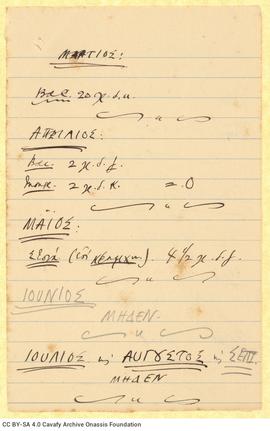 ΜΑΡΤΙΟΣ:
Βας. 20 χ.δ.κ.
ΑΠΡΙΛΙΟΣ:
Βας. 2 χ.δ.γ.
2 χ.δ.κ. = 0
ΜΑΪΟΣ:
4 1/2 χ.δ.γ.
ΙΟΥΝΙΟΣ
ΜΗΔΕΝ
ΙΟΥΛΙΟΣ κς ΑΥΓΟΥΣΤΟΣ κς ΣΕΠΤ.
ΜΗΔΕΝ
CC BY-SA 4.0 Cavafy Archive Onassis Foundation